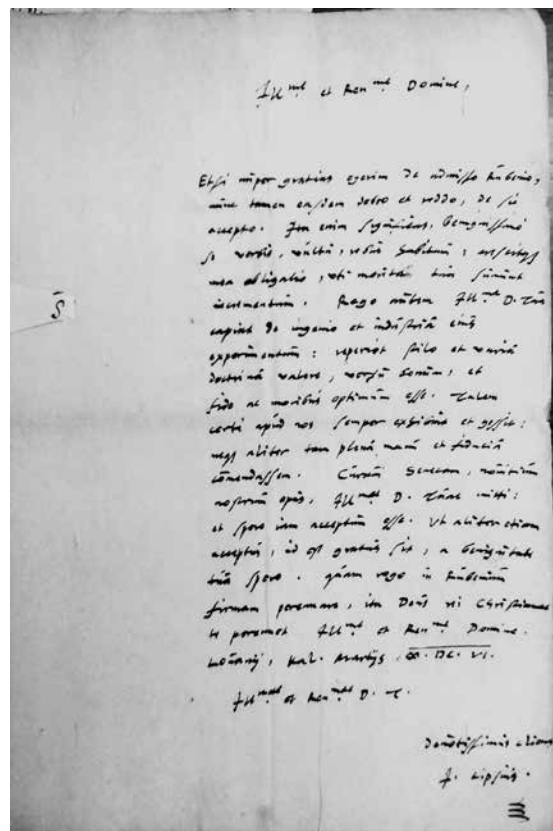 Ill.me et Rev.me Domine,
Etsi nuper gratias egerim de admisso Rubenio,
nunc tamen easdem debeo et reddo, de sic
accepto. Ita enim significat, benignissimè
se verbis, vultu, rebus habitum; crescitque
mea obligatio, uti merita tua sumunt
incrementum. Rogo autem Ill.ma D. Tua
capiat de ingenio et industriâ eius
experimentum: reperiet stilo et variâ
doctrinâ valere, versu bonum, et
fide ac moribus optimum esse. Talem
certè apud nos semper exhibuit et gessit:
neque aliter tam plenâ manu et fiduciâ
cōmendassem. Curavi Senecam, novitium
nostrum opus, Ill.mae D. Tuae mitti:
et spero iam acceptum esse. Ut aliter etiam
acceptus, id est gratus sit, a benignitate
tuâ spero. quam rogo in Rubenium
firmam permanere, ita Deus rei Christianae
te servet Ill.me et Rev.me Domine.
Lovanij, Kal. Martijs. ∞. DC. VI.
Ill.mae et Rev.mae D. T.
devotissimus cliens
J. Lipsius.
S